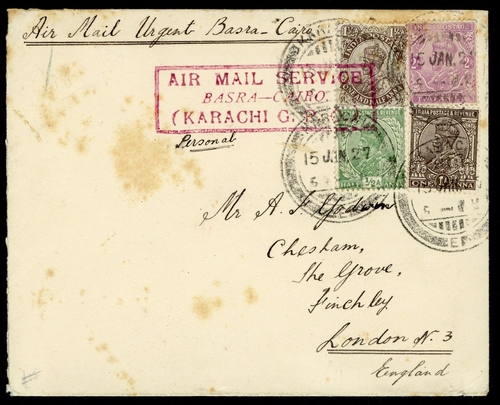 Air Mail Urgent Basra - Cairo
AIR MAIL SERVICE
BASRA—CAIRO.
(KARACHI G.
Personal
15 JAN. 27
INDIA POSTAGE & REVENUE
15 JAN. 27
ONE ANNA
Mr A. J. Godwin
Chesham,
The Grove,
Finchley
London N. 3
England